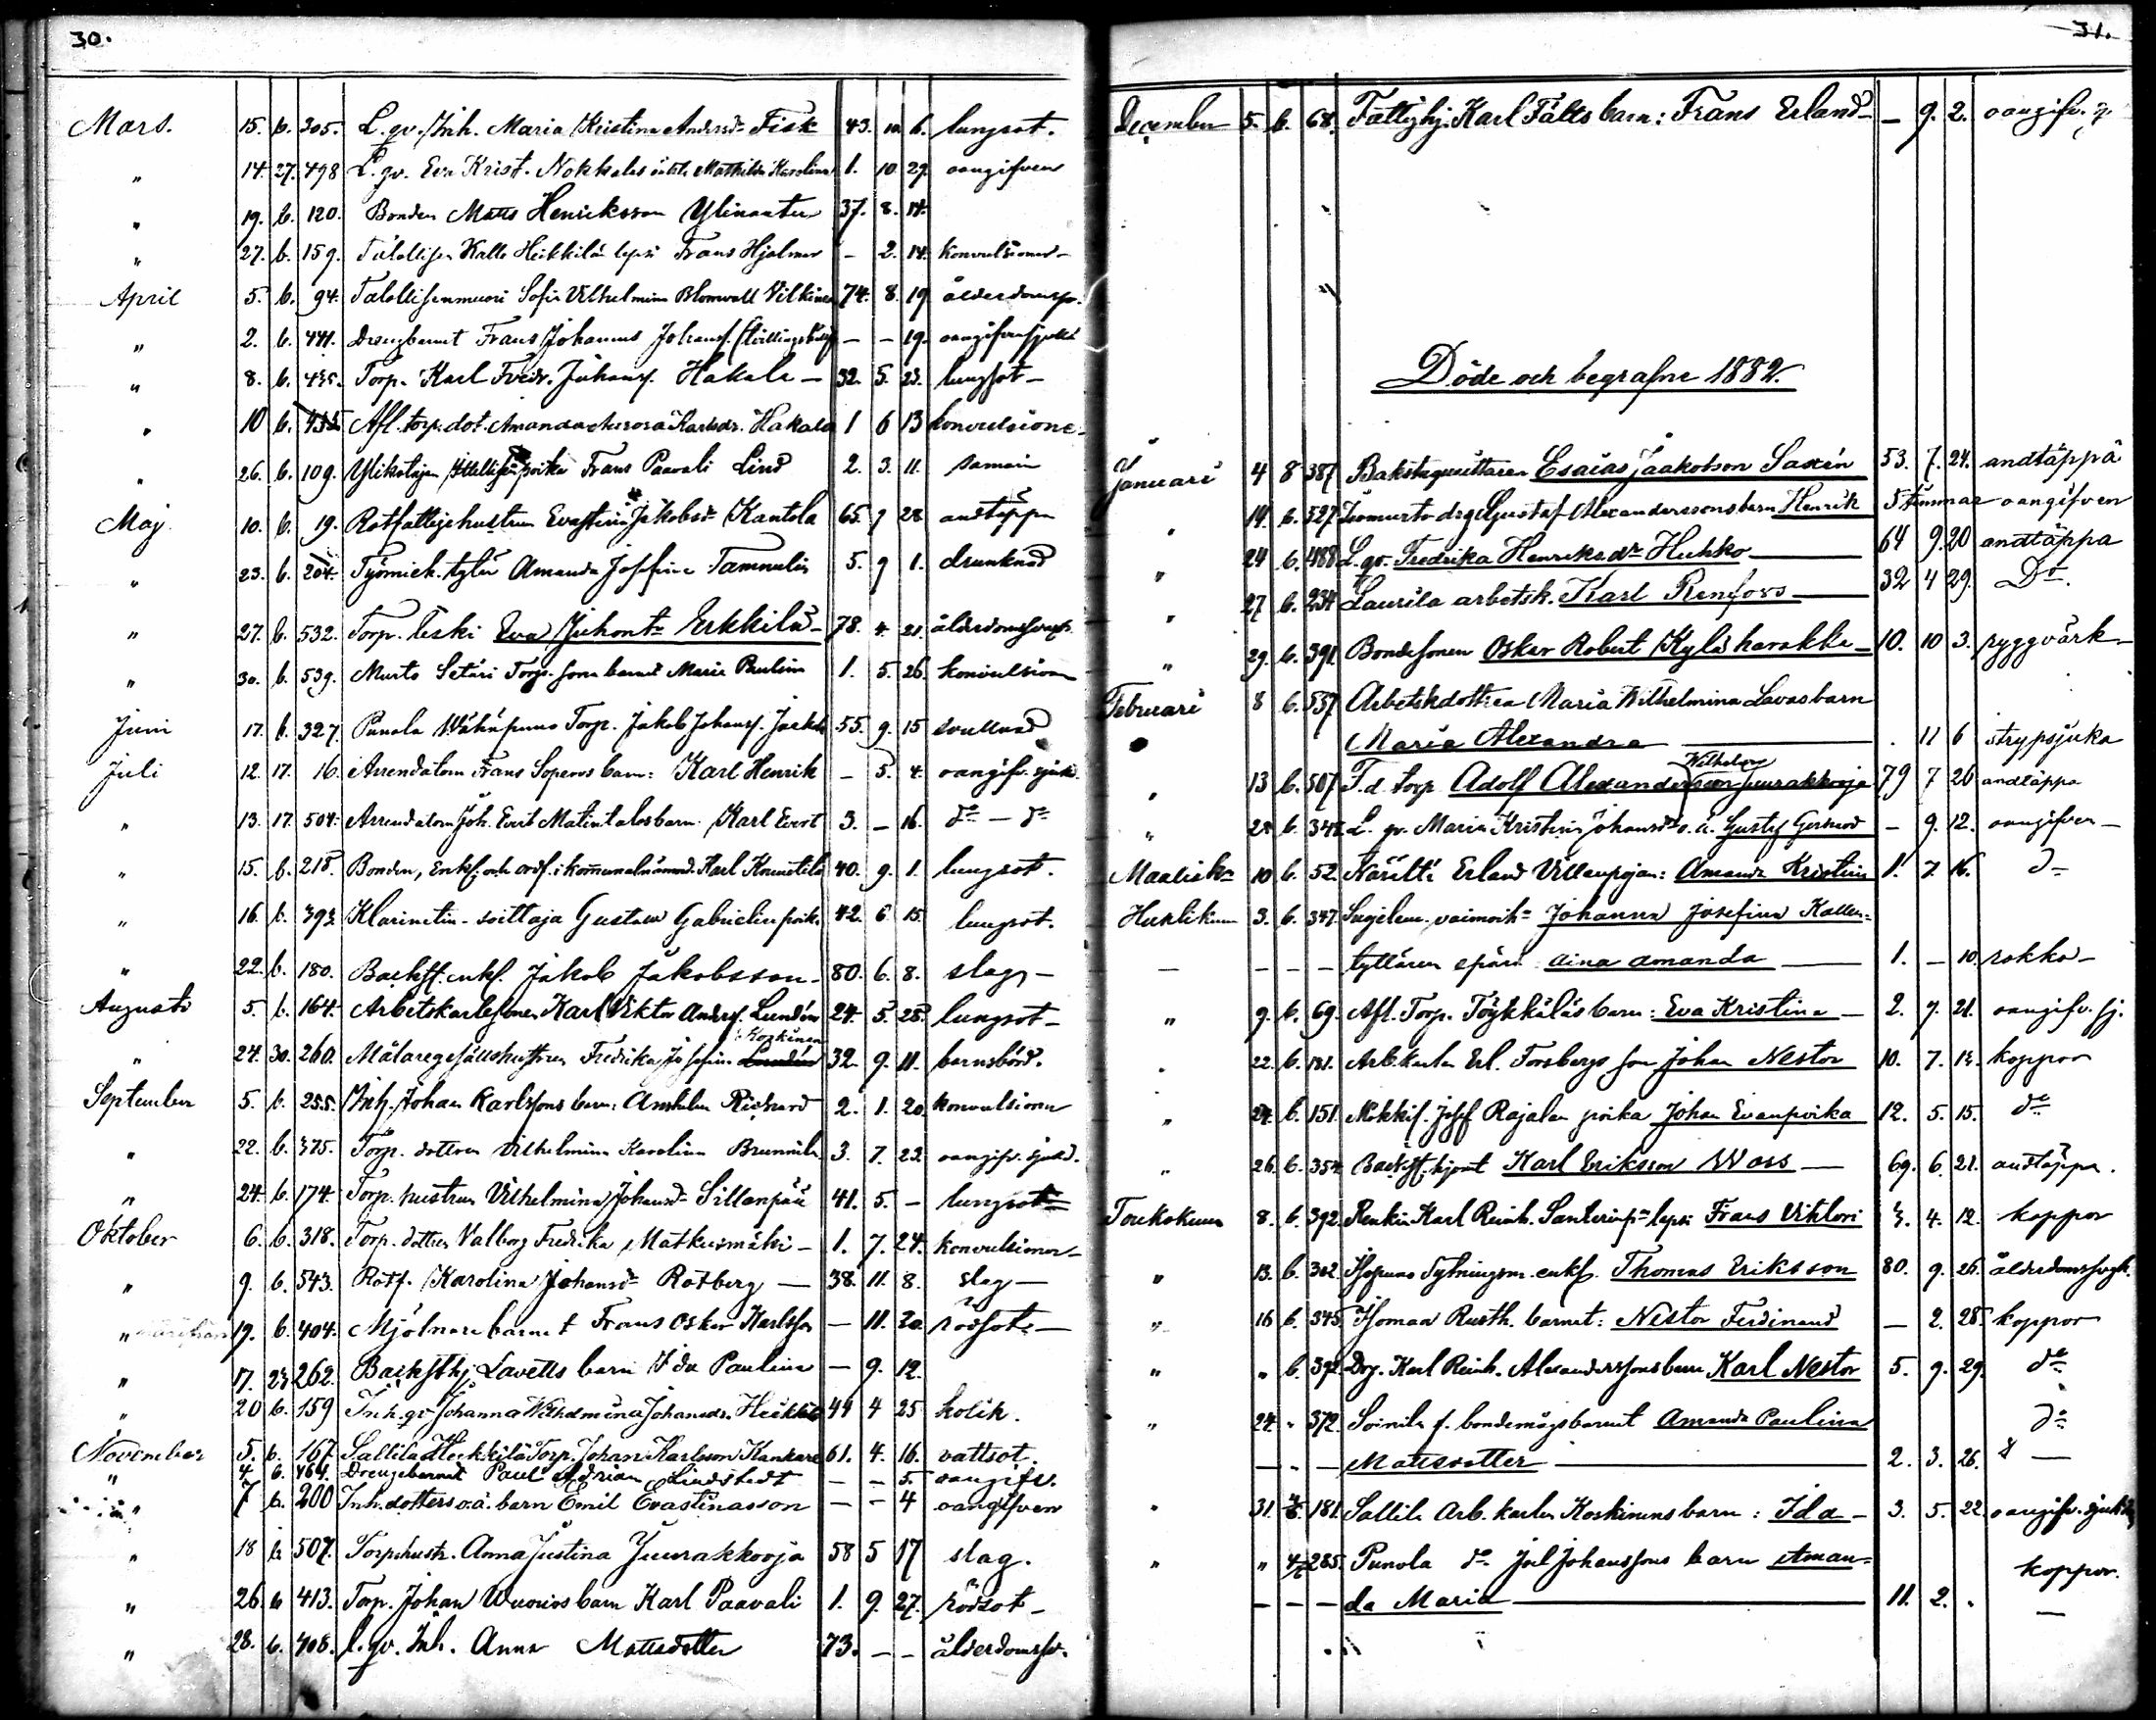 30.
Mars. 15. 6. 305. L. qv. Inh. Maria Kristina Andersdr Fisk 43. 10. 6. lungsot.
" 14. 27. 498 L. qv. Eva Krist. Nokkalas Mathilda Karolina 1. 10. 29. oangifven
" 19. 6. 120. Bonden Matts Henriksson Ylinaatu 37. 8. 14.
" 27. 6. 159. Talollisen Kalle Heikkilän lapsi Frans Hjalmar - 2. 14. konvulsioner -
April 5. 6. 94. Talollisenmuori Sofia Vilhelmina Blomvall Vilkinen 74. 8. 19. ålderdomssv.
" 2. 6. 441. Drengbarnet Frans Johannes Johansf. - - 19. oangifven
" 8. 6. 435. Torp. Karl Fredr. Juhansf. Hakala - 32. 5. 23. lungsot -
" 10 6. 435 Afl. torp. dot. Amanda Aurora Karlsdr. Hakala 1 6 13 konvulsione-
" 26. 6. 109. Ylikatajan poika Frans Paavali Lind 2. 3. 11. samoin
Maj 10. 6. 19. Rotfattighustrun Evastina Jakobsdr Kantola 65. 9 28 andtäppa
" 23. 6. 204. Työmieh. tytär Amanda Josefina Tammelin 5. 9 1. drunknad
" 27. 6. 532. Torp. leski Eva Juhontr Erkkilä - 78. 4. 21. ålderdomssvagh.
" 30. 6. 539. Murto Setäri Torp. sons barnet Maria Paulina 1. 5. 26. konvulsion
Juni 17. 6. 327. Punola Torp. Jakob Johansf. 55. 9. 15 svullnad
Juli 12. 17. 16. Arrendatorn Frans Soperos barn: Karl Henrik - 5. 4. oangifv. sjuk.
" 13. 17. 504. Arrendatorn Joh. Evert Matintalos barn Karl Evert 3. - 16. do - do
" 15. 6. 218. Bonden, Enkf. och ordf. i kommunalnämnd. Karl Knuutila 40. 9. 1. lungsot.
" 16. 6. 392 Klarinetin-soittaja Gustaa Gabrielin poika 42. 6 15. lungsot.
" 22. 6. 180. Backst. enkf. Jakob Jakobsson - 80. 6. 8. slag -
Augusti 5. 6. 164. Arbetskarlssonen Karl Viktor Andersf. Lundén 24. 5. 28. lungsot -
Koskinen
" 24. 30. 260. Målaregesällshustrun Fredrika Josefina Lundén 32. 9. 11. barnsbörd.
September 5. 6. 255. Inh. Johan Karlssons barn: Anshelm Richard 2. 1. 20 konvulsioner
" 22. 6. 375. Torp. dottren Vilhelmina Karolina Brunnila 3. 7. 23. oangifv. sjukd.
" 24. 6. 174. Torp. hustrun Vilhelmina Johansdr Sillanpää 41. 5. - lungsot
Oktober 6. 6. 318. Torp. dottren Valborg Fredrika Matkusmäki - 1. 7. 24. konvulsioner -
" 9. 6. 543. Rotf. Karolina Johansdr Rotberg - 38. 11. 8. slag -
" 19. 6. 404. Mjölnarebarnet Frans Oskar Karlsson - 11. 20. rödsot -
" 17. 23 262. Backsthj. Lavetts barn Ida Paulina - 9. 12.
" 20 6. 159 Inh. qv. Johanna Wilhelmina Johansdr. Heikkilä 44 4 25 kolik.
November 5. 6. 167. Sallila Heikkilä Torp. Johan Karlsson Kankare 61. 4. 16. vattsot.
" 4. 6. 464. Drengebarnet Paul Adrian Lindstedt - - 5. oangifv.
" 7 6. 200 Inh. dotters o.ä. barn Emil Evastinasson - - 4 oangifven
" 18 6 507. Torphustr. Anna Justina Juurakkooja 58 5 17 slag.
" 26. 6 413. Torp. Johan Wuorios barn Karl Paavali 1. 9. 27. rödsot -
" 28. 6. 408. L. qv. Inh. Anna Mattsdotter 73. - - ålderdomssv.
31.
December 5. 6. 68. Fattighj. Karl Fälts barn: Frans Erland - - 9. 2. oangifv.
Döde och begrafne 1882.
Januari 4 8 387 Bakstugusittaren Esaias Jaakobson Saxén 53. 7. 24. andtäppa
" 14. 6. 527 drg. Gustaf Alexanderssons barn Henrik 5 timmar oangifven
" 24 6. 488 L. qv. Fredrika Henriksdr Huhko 64 9. 20 andtäppa
" 27 6. 234 Laurila arbetsk. Karl Renfors 32 4 29. Do.
" 29. 6. 391 Bondesonen Oskar Robert Kyläharakka - 10. 10 3. ryggvärk -
Februari 8 6. 537 Arbetskdottren Maria Wilhelmina Lavas barn
Maria Alexandra . 11 6 strypsjuka
Wilhelm
" 13 6. 507 F.d. torp. Adolf Alexandersson Juurakkooja 79 7 26 andtäppa
" 28 6. 342. L. qv. Maria Kristina Johansdr o.ä. Gustaf Germod - 9. 12. oangifven -
Maalisk. 10 6. 52. Räätti Erland Villenpojan: Amanda Kristina 1. 7. 16. do
Huhtikuun 3. 6. 347. vaimovih. Johanna Josefina Kallen-
- - - - tyttären epärä. Aina Amanda 1. - 10. rokko -
" 9. 6. 69. Afl. Torp. Töykkäläs barn: Eva Kristina - 2. 7. 21. oangifv. sj.
" 22. 6. 181. Arb. karlen Erl. Forsbergs son Johan Nestor 10. 7. 13. koppor
" 24. 6. 151. Nokkif. Josef Rajalan poika Johan Evanpoika 12. 5. 15. do
" 26. 6. 354. Backst. hjont Karl Eriksson Wass - 69. 6. 21. andtäppa.
Toukokuun 8. 6. 392. Renkin Karl Reinh. Santerinp. lapsi Frans Viktori 3. 4. 12. koppor
" 13. 6. 302. enkf. Thomas Eriksson 80. 9. 26. ålderdomssvgh.
" 16 6. 345. Isomaa Rusth. barnet: Nestor Ferdinand - 2. 28. koppor
" " 6. 392. Drg. Karl Reinh. Alexanderssons barn Karl Nestor 5. 9. 29. do
" 24. " 372. Soinila f. bondemågs barnet Amanda Paulina do
- - - Mattsdotter 2. 3. 26.
" 31. 181. Sallila Arb. karlen Koskinens barn: Ida - 3. 5. 22. oangifv. sjukd.
" " 285. Punola do Joel Johanssons barn Aman- koppor.
- - - da Maria 11. 2. . -